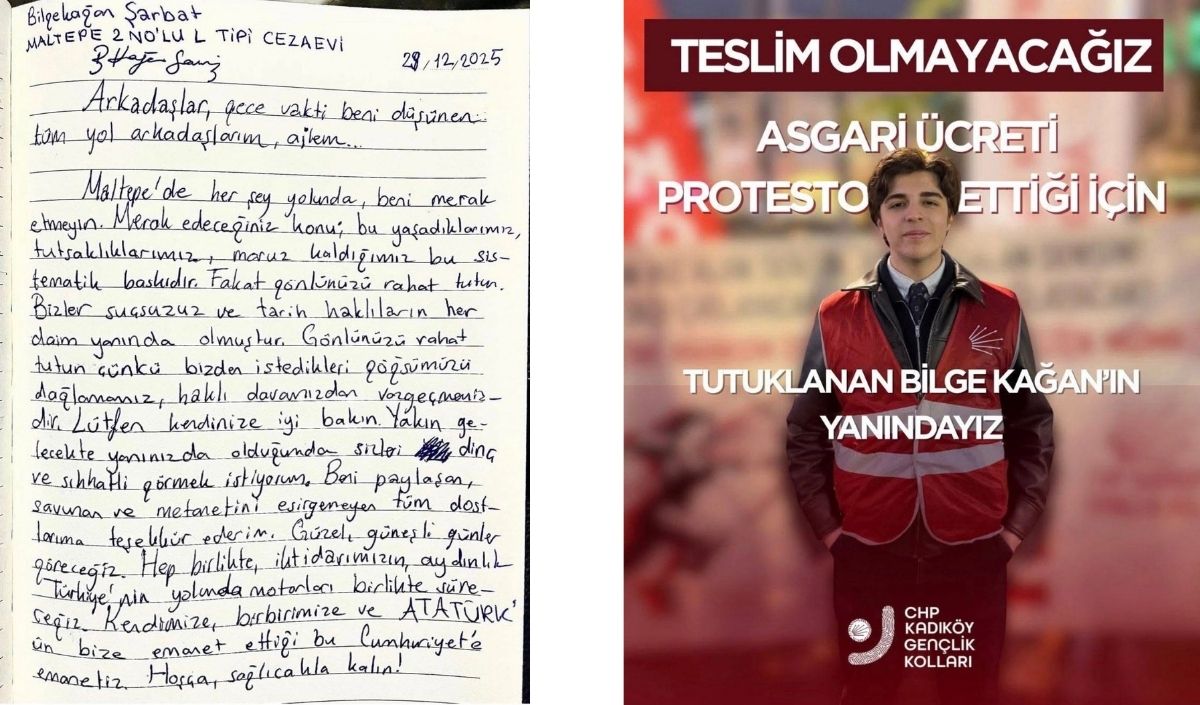 Bilgekağan Şarbat
MALTEPE 2 NO'LU L TİPİ CEZAEVİ
29/12/2025
Arkadaşlar, gece vakti beni düşünen
tüm yol arkadaşlarım, ailem...
Maltepe'de her şey yolunda, beni merak
etmeyin. Merak edeceğiniz konu; bu yaşadıklarımız,
tutsaklıklarımız, maruz kaldığımız bu sis-
tematik baskıdır. Fakat gönlünüzü rahat tutun.
Bizler suçsuzuz ve tarih haklıların her
daim yanında olmuştur. Gönlünüzü rahat
tutun çünkü bizden istedikleri göğsümüzü
dağlamamız, haklı davamızdan vazgeçmemiz-
dir. Lütfen kendinize iyi bakın. Yakın ge-
lecekte yanınızda olduğumda sizleri dinç
ve sıhhatli görmek istiyorum. Beni paylaşan,
savunan ve metanetini esirgemeyen tüm dost-
larıma teşekkür ederim. Güzel, güneşli günler
göreceğiz. Hep birlikte, iktidarımızın, aydınlık
Türkiye'nin yolunda motorları birlikte süre-
ceğiz. Kendimize, birbirimize ve ATATÜRK'
ün bize emanet ettiği bu Cumhuriyet'e
emanetiz. Hoşça, sağlıcakla kalın!
TESLİM OLMAYACAĞIZ
ASGARİ ÜCRETİ
PROTESTO ETTİĞİ İÇİN
TUTUKLANAN BİLGE KAĞAN'IN
YANINDAYIZ
CHP
KADIKÖY
GENÇLİK
KOLLARI